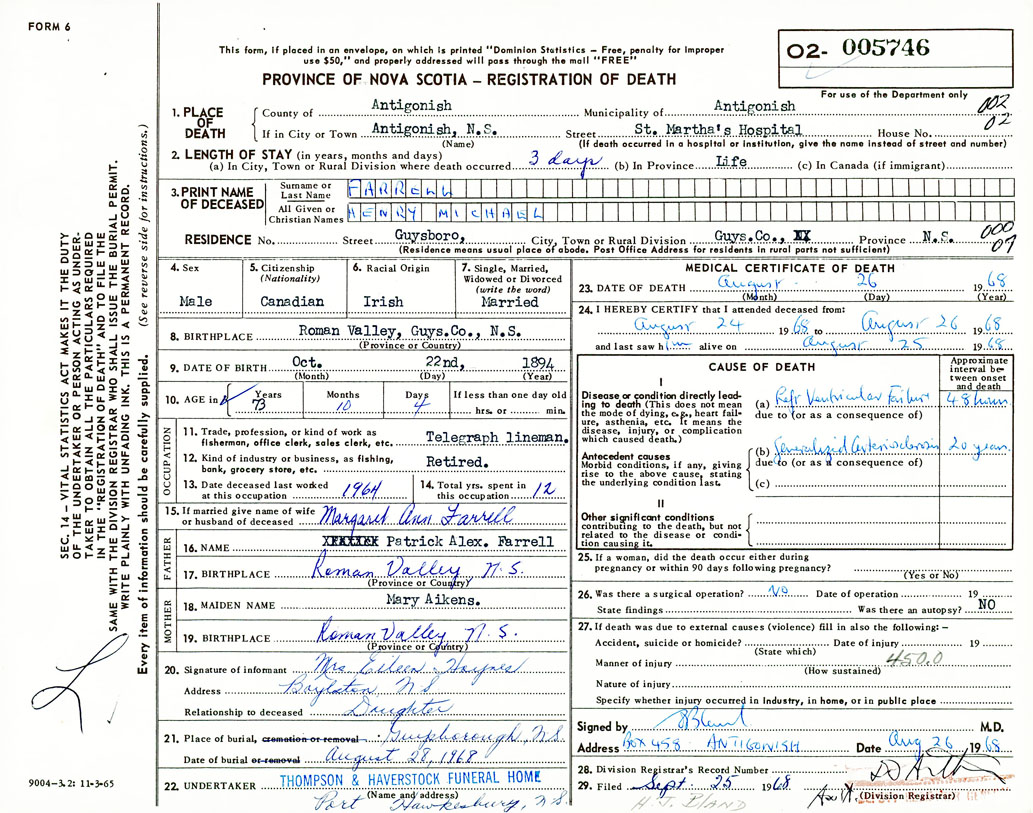 FORM 6
This form, if placed in an envelope, on which is printed "Dominion Statistics – Free, penalty for improper
use $50," and properly addressed will pass through the mail "FREE"
PROVINCE OF NOVA SCOTIA – REGISTRATION OF DEATH
02- 005746
For use of the Department only
002
02
1. PLACE OF DEATH
County of Antigonish Municipality of Antigonish
If in City or Town Antigonish, N.S. Street St. Martha's Hospital House No.
(Name) (If death occurred in a hospital or institution, give the name instead of street and number)
2. LENGTH OF STAY (in years, months and days)
(a) In City, Town or Rural Division where death occurred 3 days (b) In Province Life (c) In Canada (if immigrant)
3. PRINT NAME OF DECEASED
Surname or Last Name FARRELL
All Given or Christian Names HENRY MICHAEL
RESIDENCE No. Street Guysboro, City, Town or Rural Division Guys.Co., XX Province N.S.
(Residence means usual place of abode. Post Office Address for residents in rural parts not sufficient)
000
07
4. Sex
Male
5. Citizenship
(Nationality)
Canadian
6. Racial Origin
Irish
7. Single, Married,
Widowed or Divorced
(write the word)
Married
8. BIRTHPLACE Roman Valley, Guys.Co., N.S.
(Province or Country)
9. DATE OF BIRTH Oct. 22nd, 1894
(Month) (Day) (Year)
10. AGE in Years Months Days If less than one day old
73 10 4 hrs. or min.
OCCUPATION
11. Trade, profession, or kind of work as
fisherman, office clerk, sales clerk, etc. Telegraph lineman.
12. Kind of industry or business, as fishing,
bank, grocery store, etc. Retired.
13. Date deceased last worked
at this occupation 1964
14. Total yrs. spent in
this occupation 12
15. If married give name of wife
or husband of deceased Margaret Ann Farrell
FATHER
16. NAME Patrick Alex. Farrell
17. BIRTHPLACE Roman Valley, N.S.
(Province or Country)
MOTHER
18. MAIDEN NAME Mary Aikens.
19. BIRTHPLACE Roman Valley N.S.
(Province or Country)
20. Signature of informant Mrs. Eileen Haynes
Address Boylston, N S
Relationship to deceased Daughter
21. Place of burial, cremation or removal Guysborough, N.S.
Date of burial or removal August 28, 1968
22. UNDERTAKER THOMPSON & HAVERSTOCK FUNERAL HOME
(Name and address)
Port Hawkesbury, N.S.
MEDICAL CERTIFICATE OF DEATH
23. DATE OF DEATH August 26 1968
(Month) (Day) (Year)
24. I HEREBY CERTIFY that I attended deceased from:
August 24 1968 to August 26 1968
and last saw him alive on August 25 1968
CAUSE OF DEATH
Approximate
interval be-
tween onset
and death
I
Disease or condition directly lead-
ing to death (This does not mean
the mode of dying, e.g., heart fail-
ure, asthenia, etc. It means the
disease, injury, or complication
which caused death.)
(a) Left Ventricular Failure 48 hours
due to (or as a consequence of)
Antecedent causes
Morbid conditions, if any, giving
rise to the above cause, stating
the underlying condition last.
(b) Generalized Arteriosclerosis 20 years
due to (or as a consequence of)
(c)
II
Other significant conditions
contributing to the death, but not
related to the disease or condi-
tion causing it.
25. If a woman, did the death occur either during
pregnancy or within 90 days following pregnancy?
(Yes or No)
26. Was there a surgical operation? NO Date of operation 19
State findings Was there an autopsy? NO
27. If death was due to external causes (violence) fill in also the following: –
Accident, suicide or homicide? Date of injury 19
(State which)
Manner of injury 450.0
(How sustained)
Nature of injury
Specify whether injury occurred in industry, in home, or in public place
Signed by M.D.
Address BOX 458 ANTIGONISH Date Aug 26 1968
28. Division Registrar's Record Number
29. Filed Sept. 25 1968
(Division Registrar)
H.J. BLAND
SEC. 14 – VITAL STATISTICS ACT MAKES IT THE DUTY
OF THE UNDERTAKER OR PERSON ACTING AS UNDER-
TAKER TO OBTAIN ALL THE PARTICULARS REQUIRED
IN THE "REGISTRATION OF DEATH" AND TO FILE THE
SAME WITH THE DIVISION REGISTRAR WHO SHALL ISSUE THE BURIAL PERMIT.
WRITE PLAINLY WITH UNFADING INK. THIS IS A PERMANENT RECORD.
Every item of information should be carefully supplied. (See reverse side for instructions.)
9004-3.2: 11-3-65